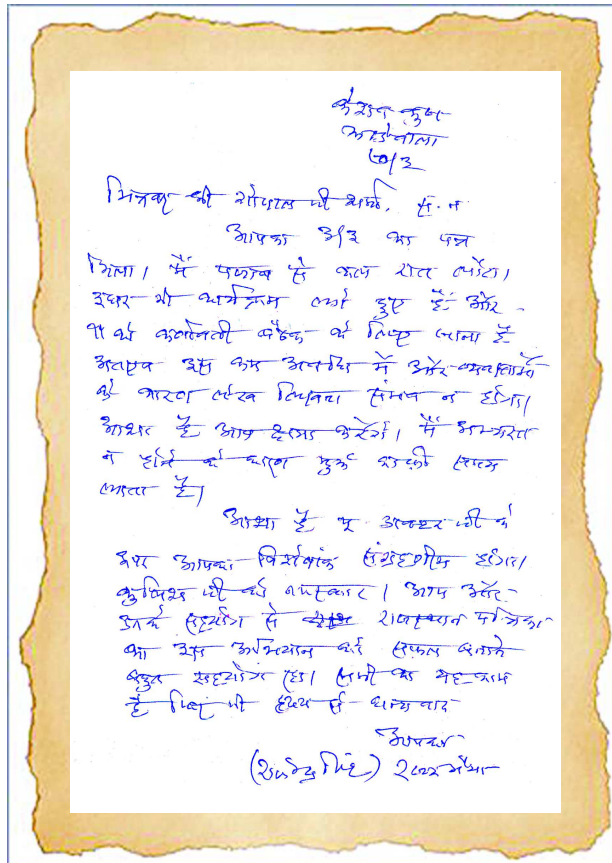 केशव कुञ्ज
झण्डेवाला
७/३
मित्रवर श्री गोपाल जी शर्मा, स. न.
आपका ३/३ का पत्र
मिला। मैं पंजाब से कल रात लौटा।
इधर भी कार्यक्रम लगे हुए हैं और
११ को कर्णावती बैठक के लिए जाना है
अतएव इस कम अवधि में और व्यस्तता
के कारण लेख लिखना संभव न होगा।
आशा है आप क्षमा करेंगे। मैं अभ्यस्त
न होने के कारण मुझे काफी समय
लगता है।
आशा है पू डाक्टर जी के
आपका विशेषांक संग्रहणीय होगा।
जी को नमस्कार। आप और
उनके सहयोग से राजस्थान पत्रिका
का इस अभियान को सफल बनाने
बहुत सहयोग रहा। सभी का यह काम
है फिर भी हृदय से धन्यवाद
आपका
(राजेन्द्र सिंह) रज्जू भैया